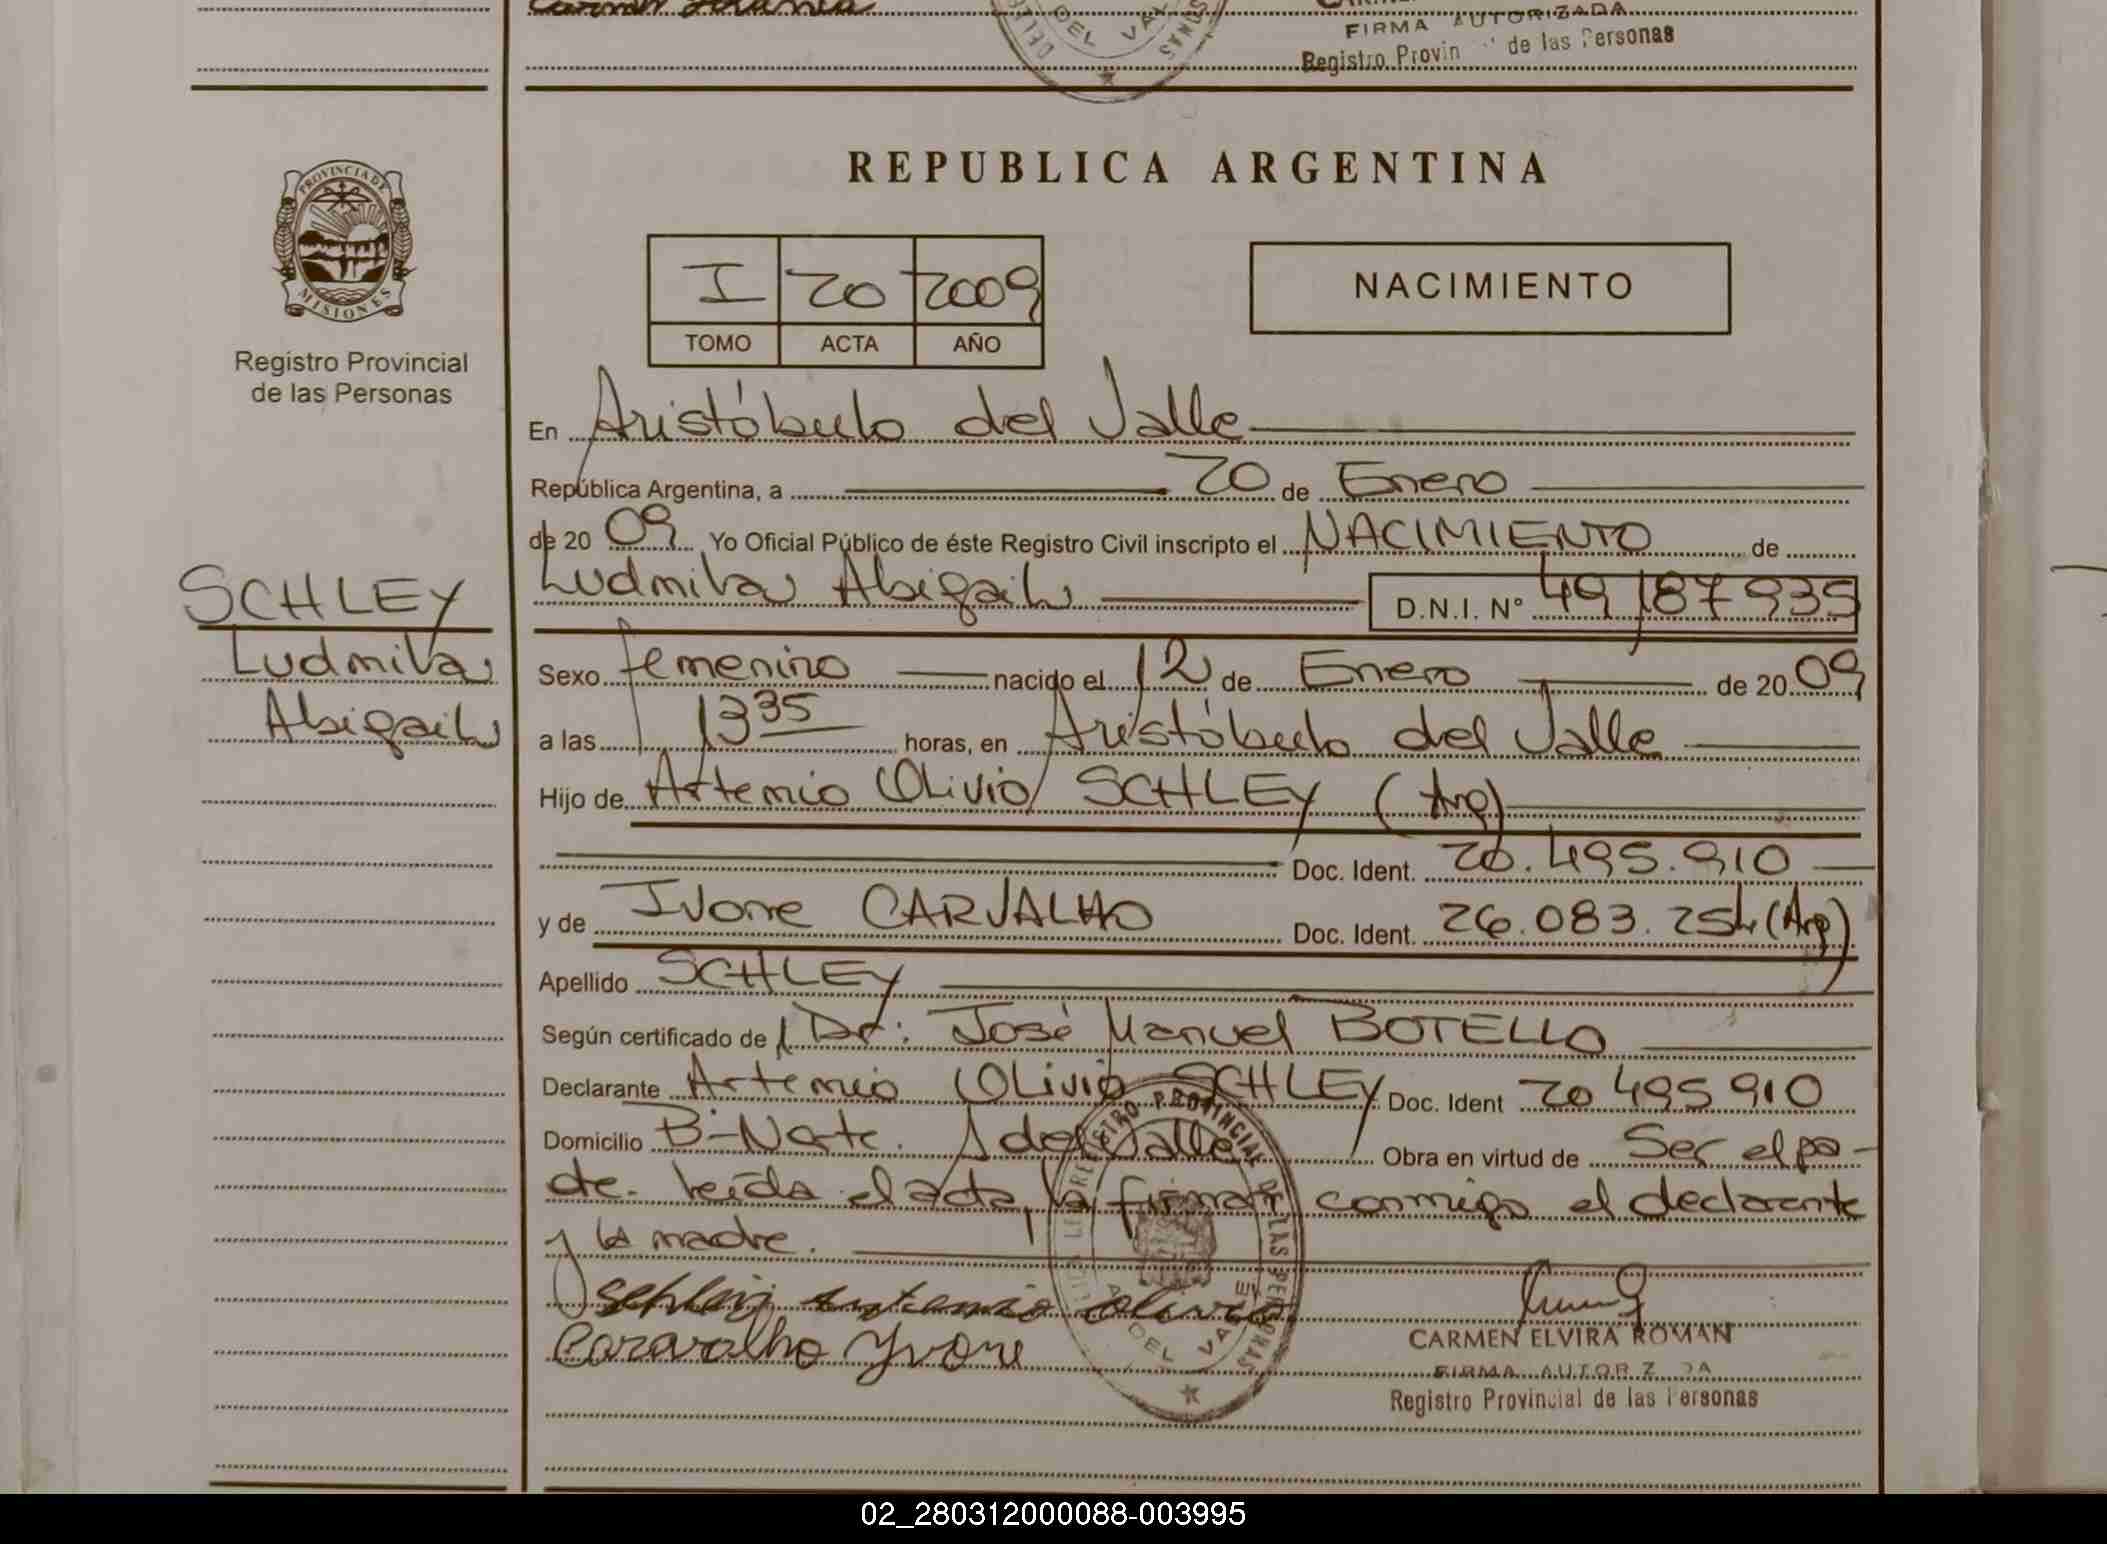 FIRMA AUTORIZADA
Registro Provin de las Personas
DEL VAL
REPUBLICA ARGENTINA
PROVINCIA DE
MISIONES
I 20 2009
TOMO ACTA AÑO
NACIMIENTO
Registro Provincial
de las Personas
En Aristóbulo del Valle
República Argentina, a 20 de Enero
de 20 09 Yo Oficial Público de éste Registro Civil inscripto el NACIMIENTO de
Ludmila Abigail D.N.I. Nº 49,187935
SCHLEY
Ludmila
Abigail
Sexo femenino nacido el 12 de Enero de 20 09
a las 13 35 horas, en Aristóbulo del Valle
Hijo de Artemio Olivio SCHLEY (Arg)
Doc. Ident. 20.495.910
y de Ivone CARVALHO Doc. Ident. 26.083.254 (Arg)
Apellido SCHLEY
Según certificado de Dr: José Manuel BOTELLO
Declarante Artemio Olivio SCHLEY Doc. Ident 20 495 910
Domicilio B-Norte. A del Valle Obra en virtud de Ser el pa-
dre. leída el acta, la firman conmigo el declarante
y la madre.
Schley Artemio Olivio
Cararvalho Yvone
REGISTRO PROVINCIAL DE LAS PERSONAS
A DEL VALLE
CARMEN ELVIRA ROMAN
FIRMA AUTORIZ DA
Registro Provincial de las Personas
02_280312000088-003995